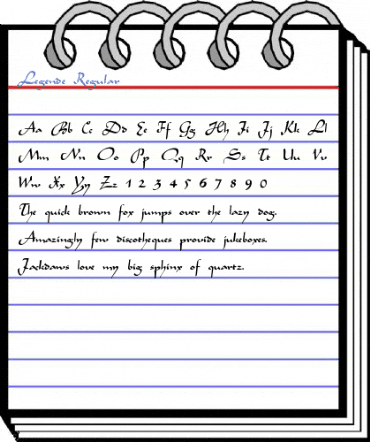 Legende Regular
Aa Bb Cc Dd Ee Ff Gg Hh Ii Jj Kk Ll
Mm Nn Oo Pp Qq Rr Ss Tt Uu Vv
Ww Xx Yy Zz 1 2 3 4 5 6 7 8 9 0
The quick brown fox jumps over the lazy dog.
Amazingly few discotheques provide jukeboxes.
Jackdaws love my big sphinx of quartz.